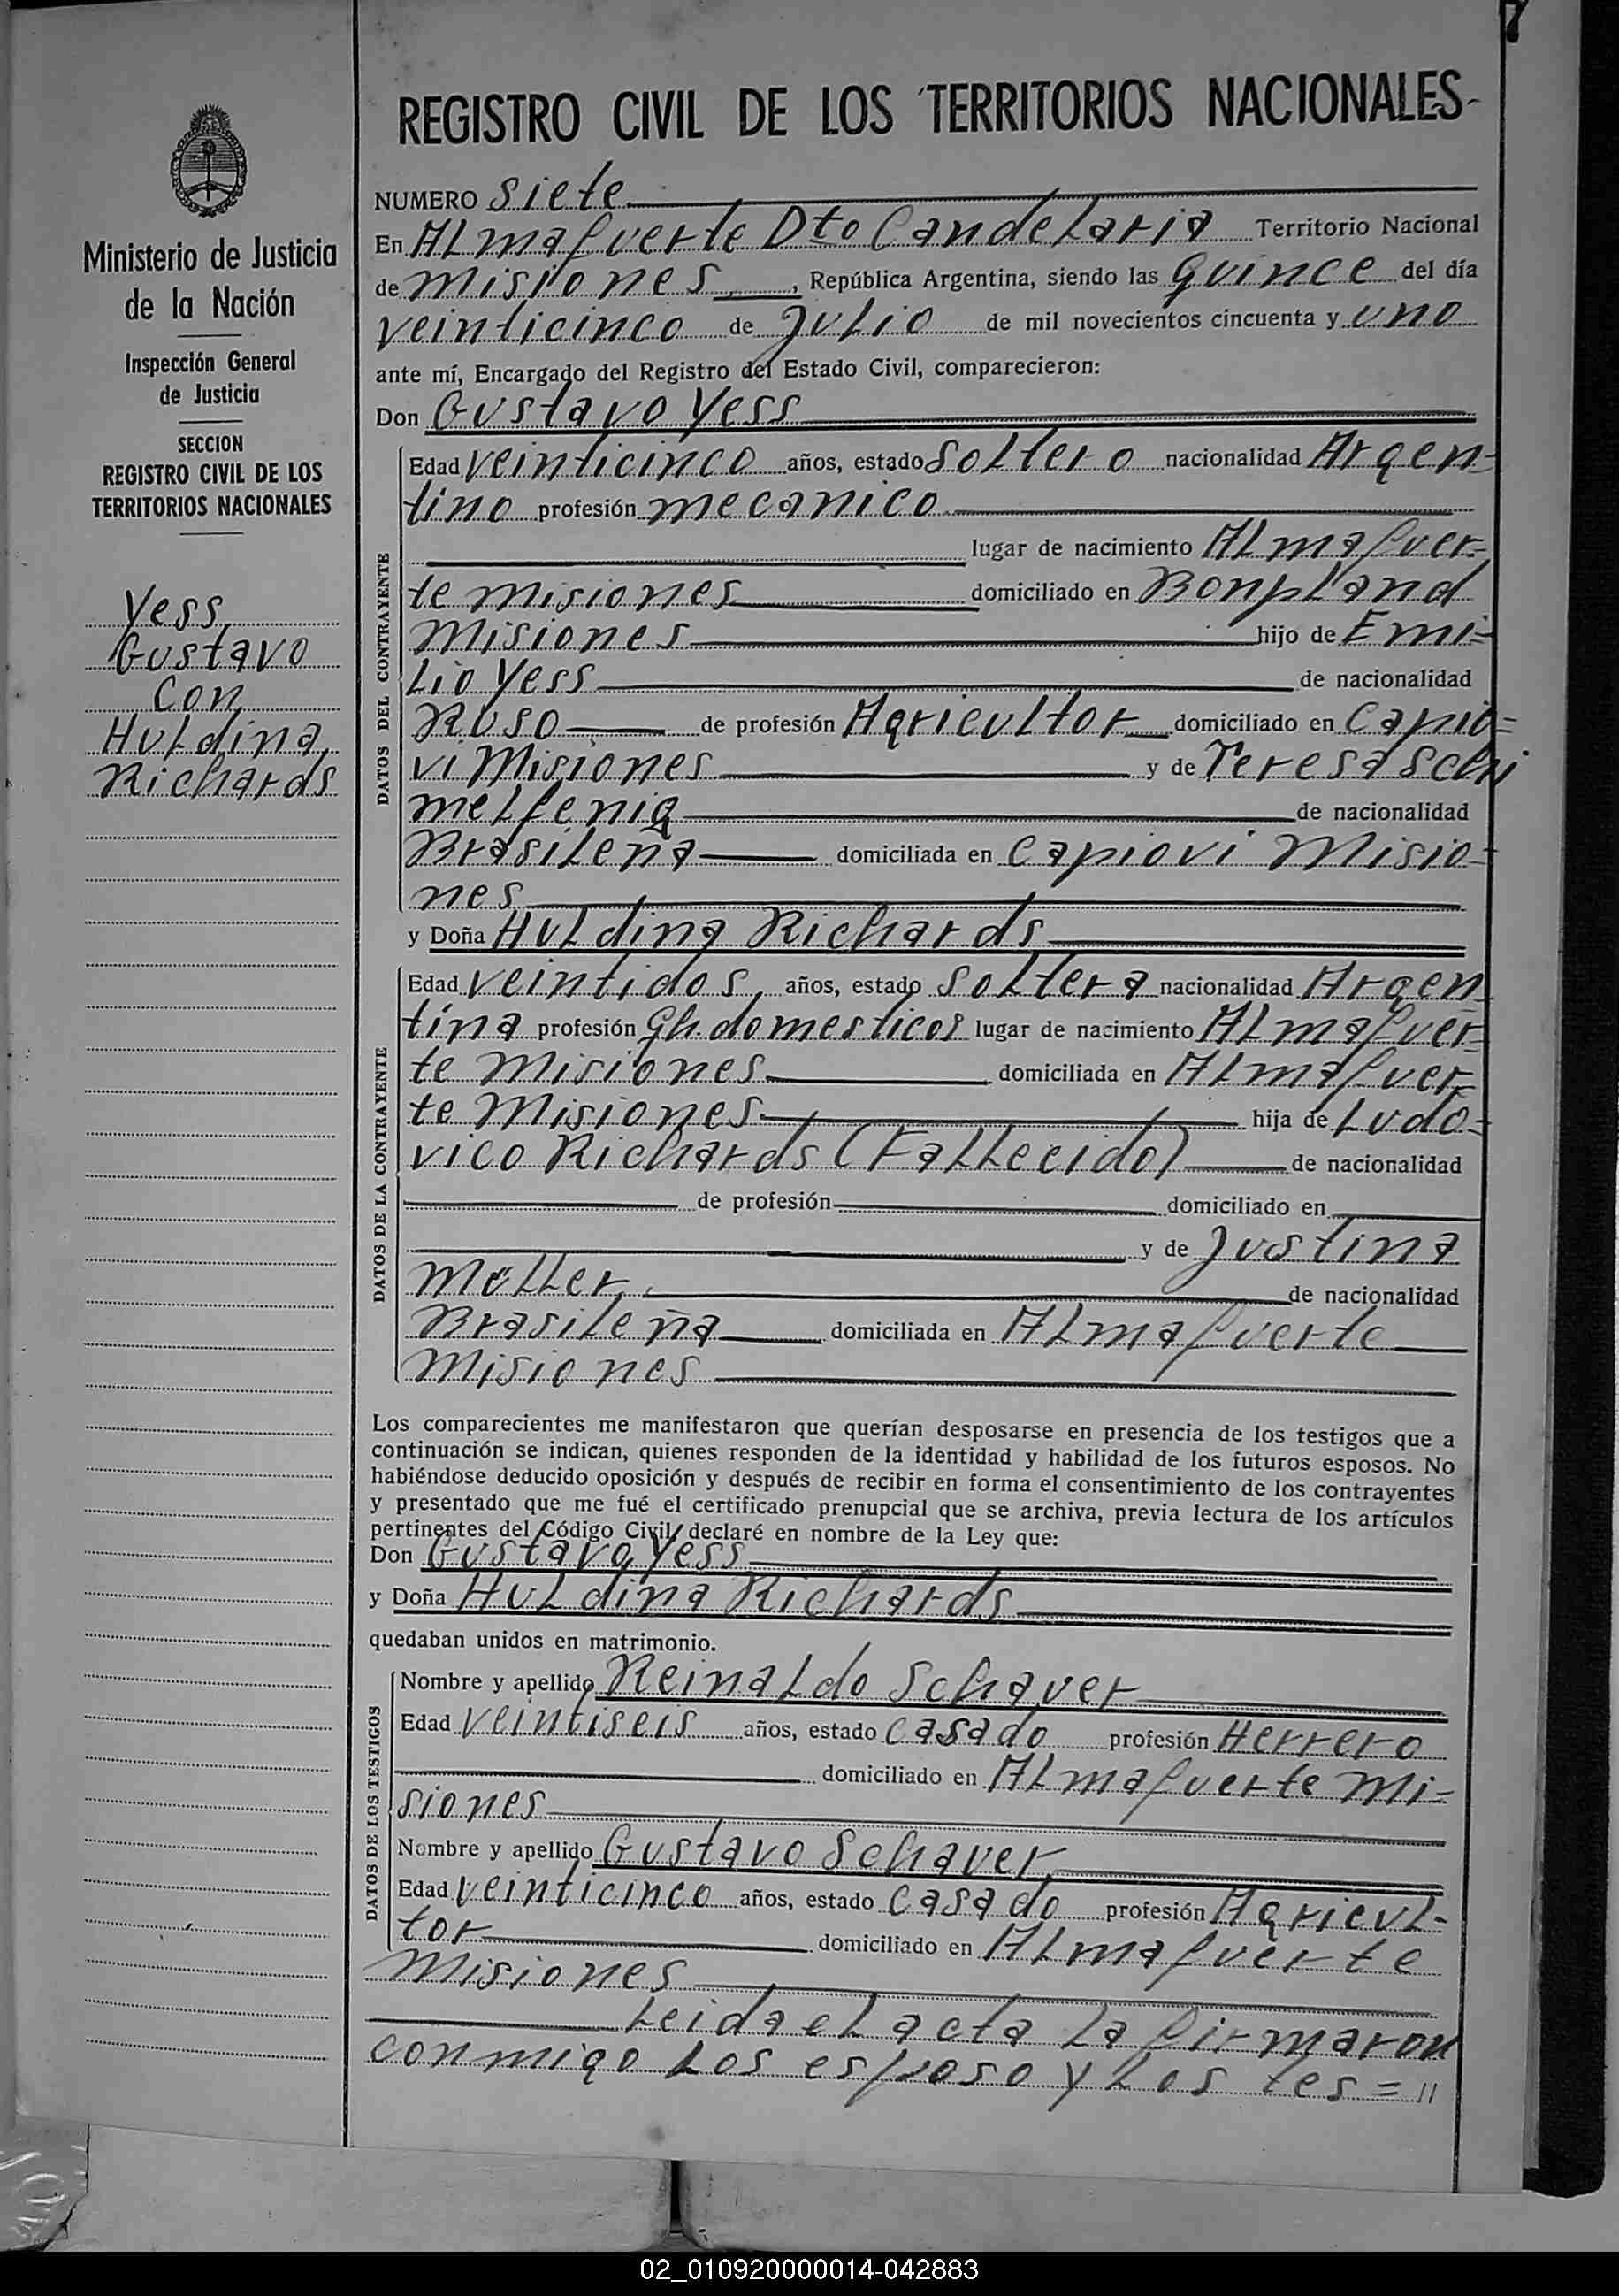 7
REGISTRO CIVIL DE LOS TERRITORIOS NACIONALES
Ministerio de Justicia
de la Nación
Inspección General
de Justicia
SECCION
REGISTRO CIVIL DE LOS
TERRITORIOS NACIONALES
Yess
Gustavo
con
Huldina
Richards
NUMERO siete
En Almafuerte Dto Candelaria Territorio Nacional
de misiones, República Argentina, siendo las quince del día
veinticinco de Julio de mil novecientos cincuenta y uno
ante mí, Encargado del Registro del Estado Civil, comparecieron:
Don Gustavo Yess
DATOS DEL CONTRAYENTE
Edad veinticinco años, estado soltero nacionalidad Argen-
tino profesión mecanico
lugar de nacimiento Almafuer-
te misiones domiciliado en Bonpland
misiones hijo de Emi-
lio Yess de nacionalidad
Ruso de profesión Agricultor domiciliado en Capio-
vi Misiones y de Teresa Schi
melfenig de nacionalidad
Brasileña domiciliada en Capiovi Misio-
nes
y Doña Huldina Richards
DATOS DE LA CONTRAYENTE
Edad veintidos, años, estado soltera nacionalidad Argen
tina profesión Qh. domesticos lugar de nacimiento Almafuer-
te misiones domiciliada en Almafuer-
te misiones hija de Ludo-
vico Richards (Fallecido) de nacionalidad
de profesión domiciliado en
y de Justina
Moller de nacionalidad
Brasileña domiciliada en Almafuerte
misiones
Los comparecientes me manifestaron que querían desposarse en presencia de los testigos que a
continuación se indican, quienes responden de la identidad y habilidad de los futuros esposos. No
habiéndose deducido oposición y después de recibir en forma el consentimiento de los contrayentes
y presentado que me fué el certificado prenupcial que se archiva, previa lectura de los artículos
pertinentes del Código Civil, declaré en nombre de la Ley que:
Don Gustavo Yess
y Doña Huldina Richards
quedaban unidos en matrimonio.
DATOS DE LOS TESTIGOS
Nombre y apellido Reinaldo Schauer
Edad veintiseis años, estado casado profesión Herrero
domiciliado en Almafuerte Mi-
siones
Nombre y apellido Gustavo Schauer
Edad veinticinco años, estado casado profesión Agricul-
tor domiciliado en Almafuerte
misiones
Leida el acta la firmaron
conmigo los esposo y los tes= "
02_010920000014-042883